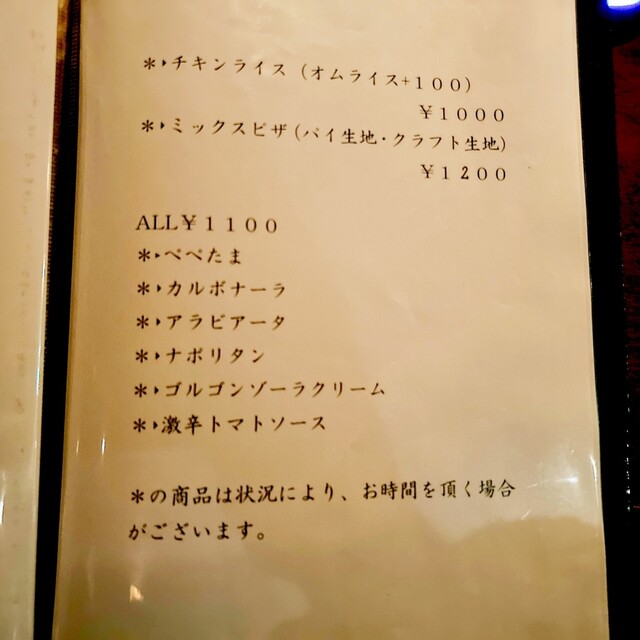 ＊▸チキンライス（オムライス+１００）
￥１０００
＊▸ミックスピザ(パイ生地・クラフト生地)
￥１２００
ALL￥１１００
＊▸ペペたま
＊▸カルボナーラ
＊▸アラビアータ
＊▸ナポリタン
＊▸ゴルゴンゾーラクリーム
＊▸激辛トマトソース
＊の商品は状況により、お時間を頂く場合
がございます。